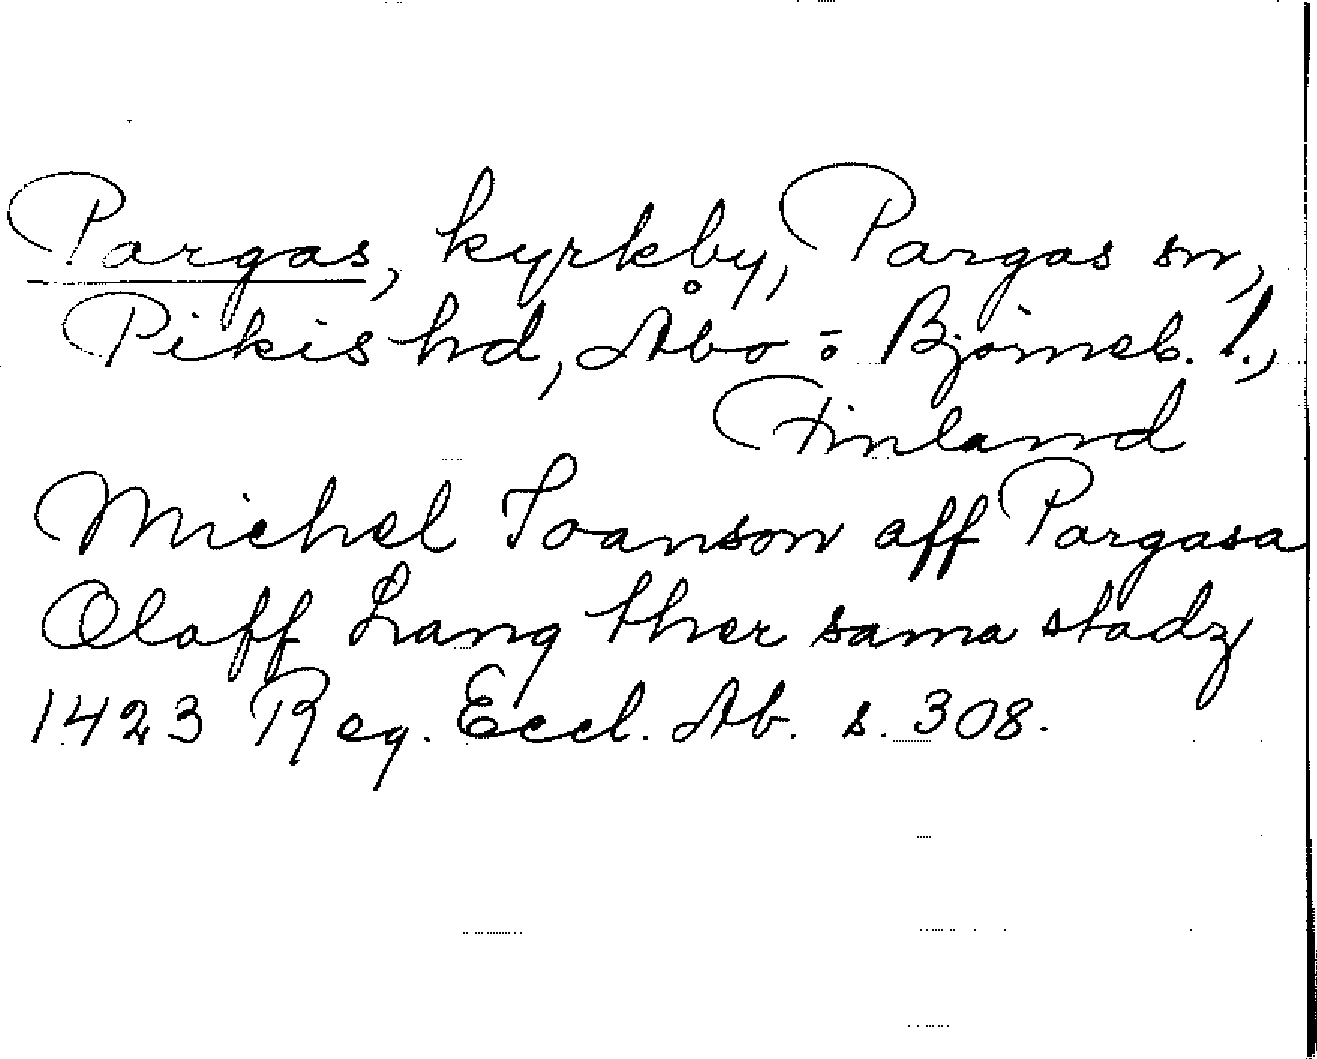 Pargas, kyrkby, Pargas sn,
Pikis hd, Åbo o Björneb. l.,
Finland
Michel Joanson aff Pargasa
Olaff Lang ther sama stadz
1423 Reg. Eccl. Ab. s. 308.